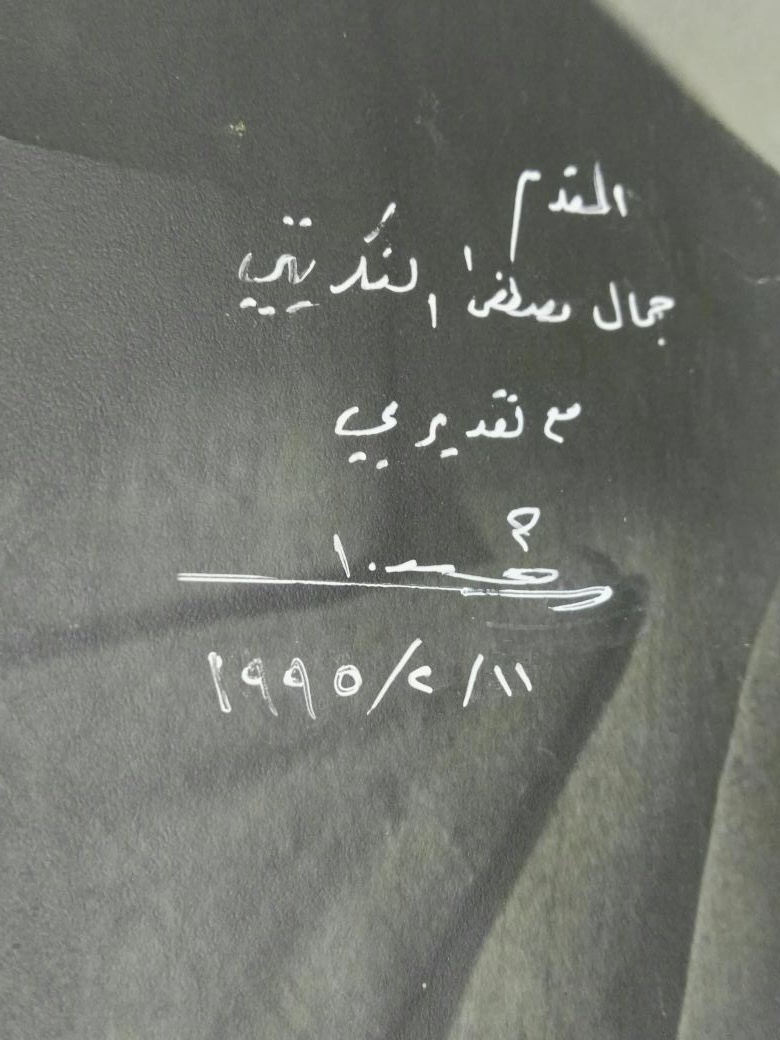 المقدم
جمال مصطفى التكريتي
مع تقديري
١٩٩٥/٢/١١